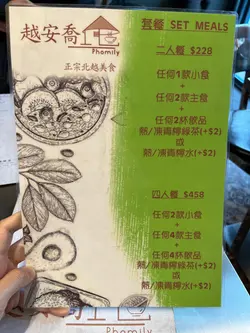 越安喬
Phomily
正宗北越美食
套餐 SET MEALS
二人餐 $228
任何1款小食
+
任何2款主食
+
任何2杯飲品
熱/凍青檸綠茶(+$2)
或
熱/凍青檸水(+$2)
四人餐 $458
任何2款小食
+
任何4款主食
+
任何4杯飲品
熱/凍青檸綠茶(+$2)
或
熱/凍青檸水(+$2)
Phomily